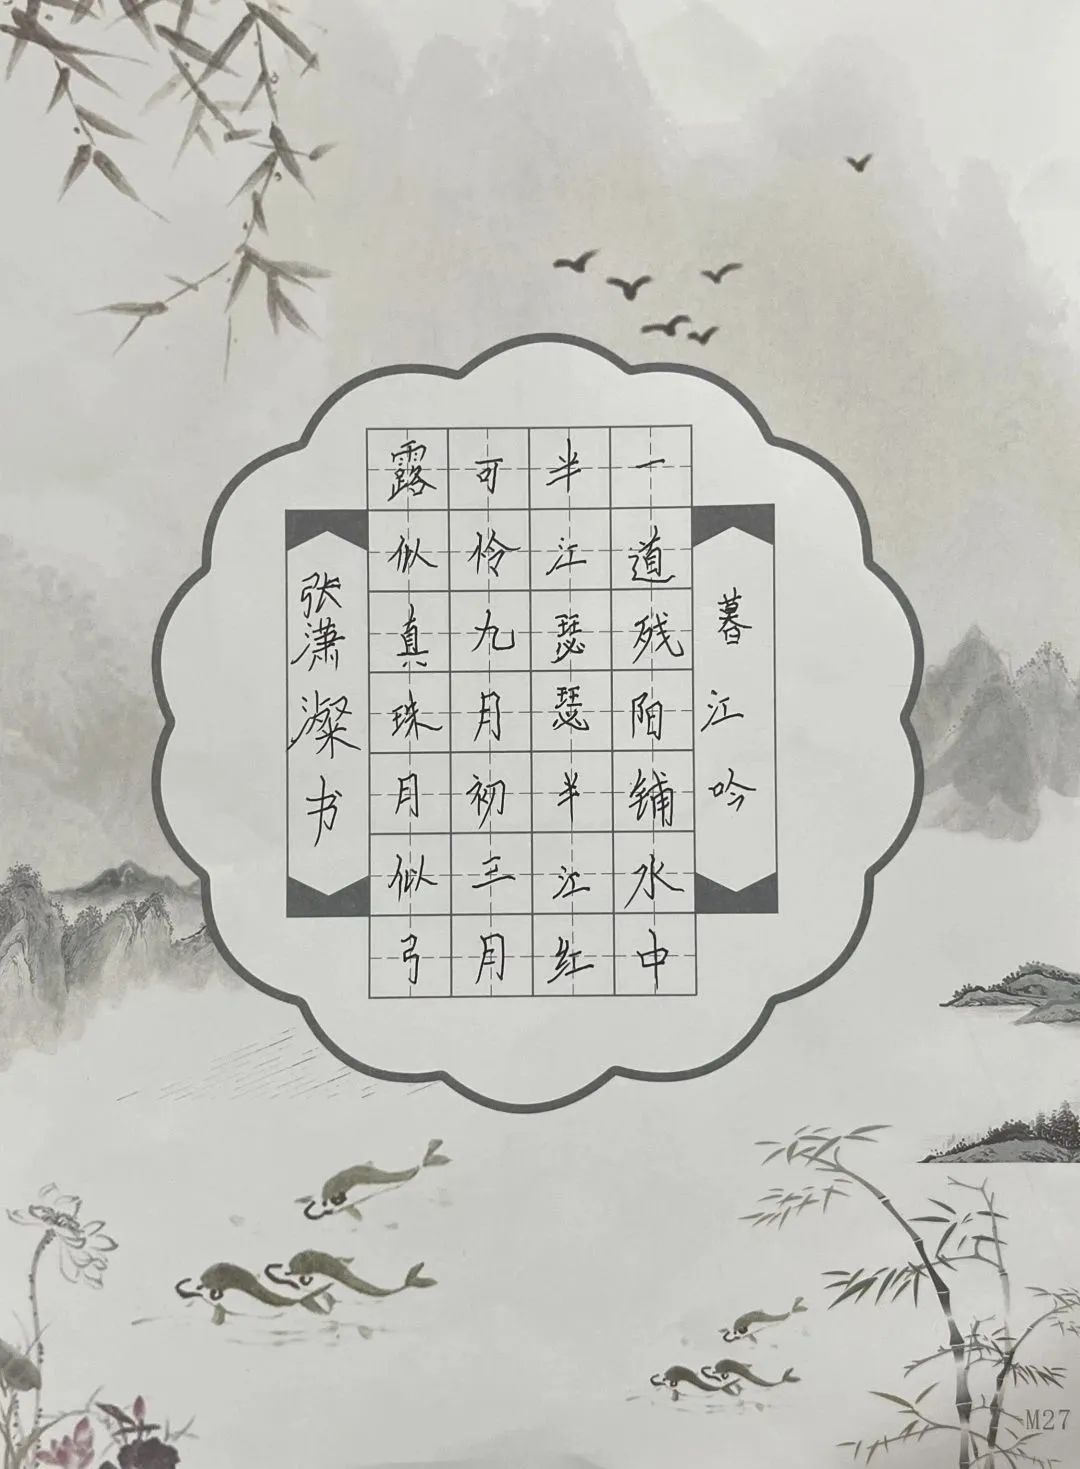 暮江吟
一道残阳铺水中
半江瑟瑟半江红
可怜九月初三月
露似真珠月似弓
张潇潹书
M27